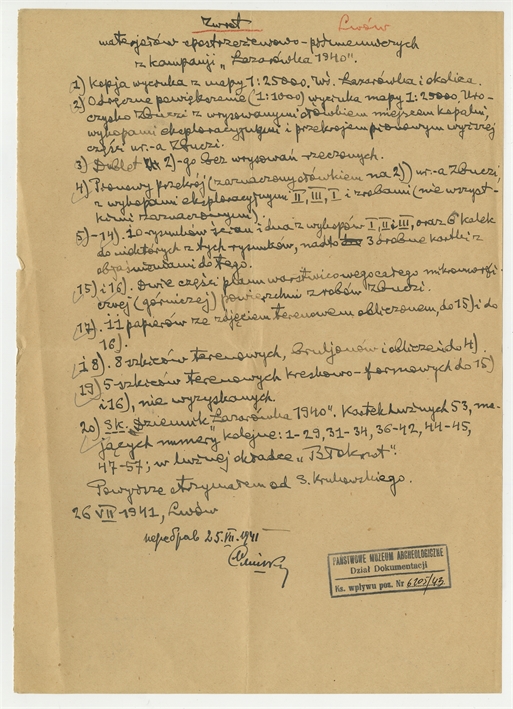 Zwrot
Lwów
materjałów spostrzeżeniowo-pomiarowych
z kampanji „Łazarówka 1940".
1) Kopja wycinka z mapy 1:25000. Wś. Łazarówka i okolica.
2) Odręczne powiększenie (1:1000) wycinka mapy 1:25000. Uro-
czysko Zbuczi z wrysowanymi ołówkiem miejscem kopalni,
wykopami eksploracyjnymi i przekrojem pionowym wyższej
części ur-a Zbuczi.
3) Dublet 2)-go bez wrysowań rzeczonych.
4) Pionowy przekrój (zaznaczony ołówkiem na 2)) ur-a Zbuczi
z wykopami eksploracyjnymi II, III, I i zrobami (nie wszyst-
kimi zaznaczonymi).
5)-14). 10 rysunków ścian i dna z wykopów I, II i III, oraz 6 kalek
do niektórych z tych rysunków, nadto 3 drobne kartki z
objaśnieniami do tego.
15) i 16). Dwie części planu warstwicowego całego mikromorfi-
cznej (górniczej) powierzchni zrobów Zbuczi.
17). 11 papierów ze zdjęciem terenowem obliczonem, do 15) i do
16).
18). 8 szkiców terenowych, bruljonów i obliczeń do 4).
19) 5 szkiców terenowych kreskowo-formowych do 15)
i 16), nie wyzyskanych.
20) S.K. Dziennik „Łazarówka 1940". Kartek luźnych 53, ma-
jących numery kolejne: 1-29, 31-34, 36-42, 44-45,
47-57; w luźnej okładce „Bloknot".
Powyższe otrzymałem od S. Krukowskiego.
26 VII 1941, Lwów
25.VII.1941
PAŃSTWOWE MUZEUM ARCHEOLOGICZNE
Dział Dokumentacji
Ks. wpływu poz. Nr 6105/43